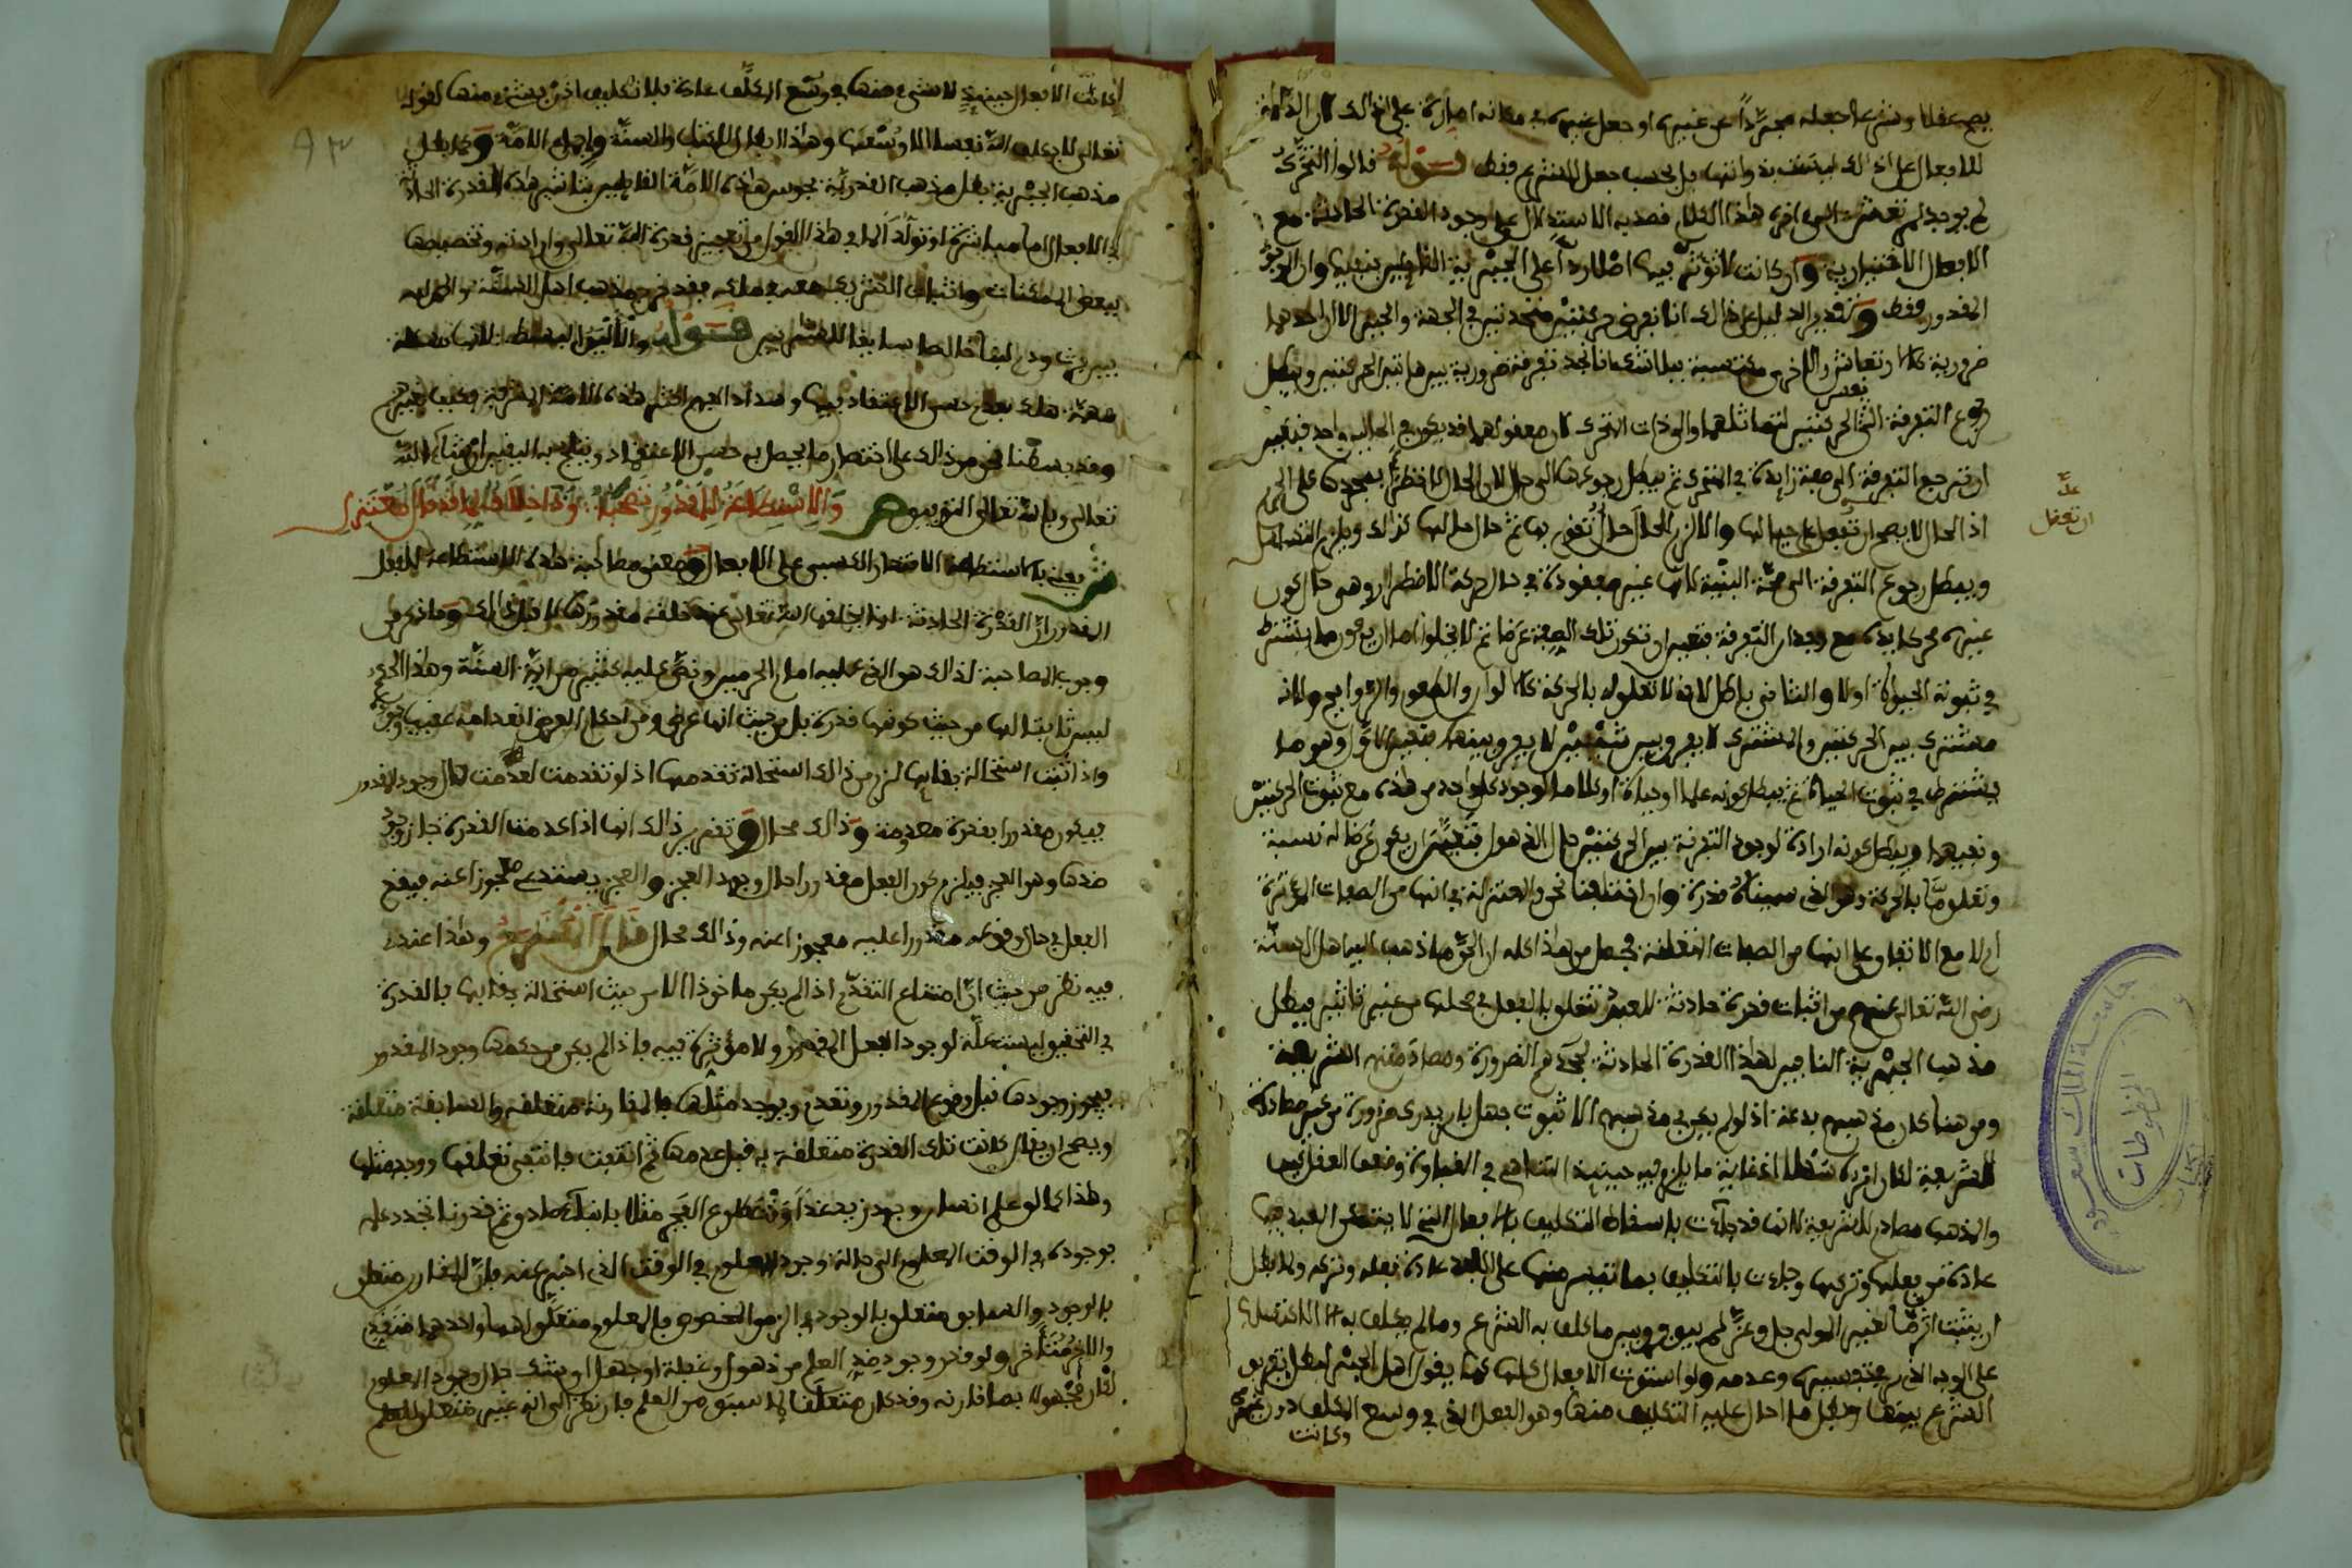 يصح عقلا وشرعا جعله مجردا عن غيره او جعل غيره في مكانه امارة على ذلك لان الدلالة
للافعال على ذلك ليست بذواتها بل بحسب جعل الشرع فقط قوله قالوا التحرك
لم يوجد لم تقم به الى اخره هذا الكلام قصد به الاستدلال على وجود القدرة الحادثة مع
الافعال الاختيارية وان كانت لا تؤثر فيها اصلا ردا على الجبرية القائلين بنفيها وان الموجود
المقدور فقط وتقرير الدليل على ذلك انا نفرض حركتين متحدتين في الجهة والحيز الا ان احدهما
ضرورية كالارتعاش والاخرى مكتسبة فلا شك انا نجد تفرقة ضرورية بين هاتين الحركتين ويبطل
رجوع التفرقة الى نفس الحركتين لتماثلهما والى ذات المتحرك لان معقولها قد يكون في الحالين واحد فتعين
ان ترجع التفرقة الى صفة زائدة في المتحرك ثم يبطل رجوعها الى حال لان الحال لا تطرأ بمجردها على الجوهر
اذ الحال لا يصح ان تعقل على حيالها والا لزم للحال حال تقوم بها ثم حال حالها كذلك ويلزم التسلسل
ويبطل رجوع التفرقة الى صحة البنية لانها غير مفقودة في حال حركة الاضطرار وهي حال كون
غيره محركا يده مع وجدان التفرقة فتعين ان تكون تلك الصفة عرضا ثم لا يخلوا اما ان يكون مما يشترط
في ثبوته الحياة او لا والثاني باطل لانه لا تعلق له بالحركة كالالوان والطعوم والروايح ولانه
مشترك بين الحركتين والمشترك لا يفرق بين شيئين لا يعروا بينهما فتعين الاول وهو ما
يشترط في ثبوته الحياة ثم يبطل كونه علما او حياة او كلاما لوجود كل واحد من هذه مع ثبوت الحركتين
ونفيهما ويبطل كونه ارادة لوجود التفرقة بين الحركتين حال الذهول فتعين ان يكون عرضا له نسبة
وتعلق ما بالحركة وهو الذي سميناه قدرة وان اختلفنا نحن والمعتزلة في انها من الصفات المؤثرة
ام لا مع الاتفاق على انها من الصفات المتعلقة فحصل من هذا كله ان الحق ما ذهب اليه اهل السنة
رضي الله تعالى عنهم من اثبات قدرة حادثة للعبد تتعلق بالفعل في محلها من غير تاثير فبطل
مذهب الجبرية النافين لهذا القدرة الحادثة لجحدهم الضرورة ومصادمتهم الشريعة
ومن هنا كان مذهبهم بدعة اذ لو لم يكن في مذهبهم الا ثبوت جهل بامر يدرك ضرورة من غير مصادمة
للشريعة لكان امره سهلا اذ غاية ما يلزم فيه حينئذ التناهي في الغباوة وضعف العقل كيف
والمذهب مصادم للشريعة لانها قد جاءت باسقاط التكليف بالافعال التي لا يتمكن العبد فيها
عادة من فعلها وتركها وجاءت بالتكليف بما تيسر منها على العبد عادة فعله وتركه ولا بطل
ان يثبت اثر ما لغير المولى جل وعز لم يبق فرق بين ما كلف به الشرع وما لم يكلف به الا الاكتساب
على الوجه الذي مر تفسيره وعدمه ولو استوت الافعال كلها كما يقول اهل الجبر لبطل تفريق
الشرع بينهما وبطل ما احال عليه التكليف منها وهو الفعل الذي في وسع المكلف دون غيره
وكانت
علة
ان تعقل
جامعة الملك سعود
المخطوطات
اذ كانت الافعال حينئذ لا شيء منها في وسع المكلف عادة فلا تكليف اذن بشيء منها لقوله
تعالى لا يكلف الله نفسا الا وسعها وهذا ابطال للكتاب والسنة واجماع الامة وكما بطل
مذهب الجبرية بطل مذهب القدرية مجوس هذه الامة القائلين بتاثير هذه القدرة الحادثة
في الافعال اما مباشرة او تولدا لما في هذا القول من تعجيز قدرة الله تعالى وارادته وتخصيصها
ببعض الممكنات واثبات الشريك معه في ملكه فقد خرج مذهب اهل السنة والجماعة
من بين فرث ودم لبنا خالصا سايغا للشاربين قوله والاثر البسط لانها مسئلة
مهمة هلك بعدم حسن الاعتقاد فيها وسداد الفهم اكثر هذه الامة المشرفة فكيف بغيرهم
وقد بسطنا نحن من ذلك على اختصار ما يحصل به حسن الاعتقاد ويثلج به اليقين ان شاء الله
تعالى وبالله تعالى التوفيق ص والاستطاعة للمقدور تصحب وذا خلاف لما قد قال معتزلي
ش يعني بالاستطاعة الاقتدار الكسبي على الافعال ومعنى مصاحبة هذه الاستطاعة للفعل
المقدور ان القدرة الحادثة انما يخلقها الله تعالى عند خلقه مقدورها لا قبل ذلك وما ذكر من
وجوب المصاحبة لذلك هو الذي عليه امام الحرمين ونص عليه كثير من ائمة السنة وهذا الحكم
ليس ثابتا لها من حيث كونها قدرة بل من حيث انها عرض ومن احكام العرض انعدامه عقب وجوده
واذا ثبت استحالة بقائها لزم من ذلك استحالة تقدمها اذ لو تقدمت لعدمت حال وجود المقدور
فيكون مقدورا بقدرة معدومة وذلك محال وتقرير ذلك انها اذا عدمت القدرة جاز وجود
ضدها وهو العجز فيلزم كون الفعل مقدورا حال وجود العجز والعجز يستدعي معجوزا عنه فيقع
الفعل في حال وقوعه مقدورا عليه معجوزا عنه وذلك محال قال المقترح وهذا عندي
فيه نظر من حيث ان امتناع التقدم اذ لم يكن ماخوذا الا من حيث استحالة بقائها بالقدرة
في التحقيق ليست علة لوجود الفعل المقدور ولا مؤثرة فيه فاذا لم يكن من حكمها وجود المقدور
فيجوز وجودها قبل وقوع المقدور وتعدم ويوجد مثلها بالمقارنة متعلقة والسابقة متعلقة
ويصح ان يقال كانت تلك القدرة متعلقة به قبل عدمها ثم انتفت فانتفى تعلقها ووجد مثلها
وهذا كما لو علم انسان وجود زيد غدا وقت طلوع الفجر مثلا باخبار صادق ثم قدرنا تجدد علم
بوجوده في الوقت المعلوم الى حالة وجود المعلوم في الوقت الذي اخبر عنه فان المقارن متعلق
بالوجود والسابق متعلق بالوجود في الزمن المخصوص فالمعلوم متعلق لهما واحدهما متقدم
والاخر متاخر ولو قدر وجود ضد العلم من ذهول او غفلة او جهل او شك حال وجود المعلوم
لكان مجهولا بما قارنه وقد كان متعلقا لما سبق من العلم فان نظر الى انه غير متعلق للعلم